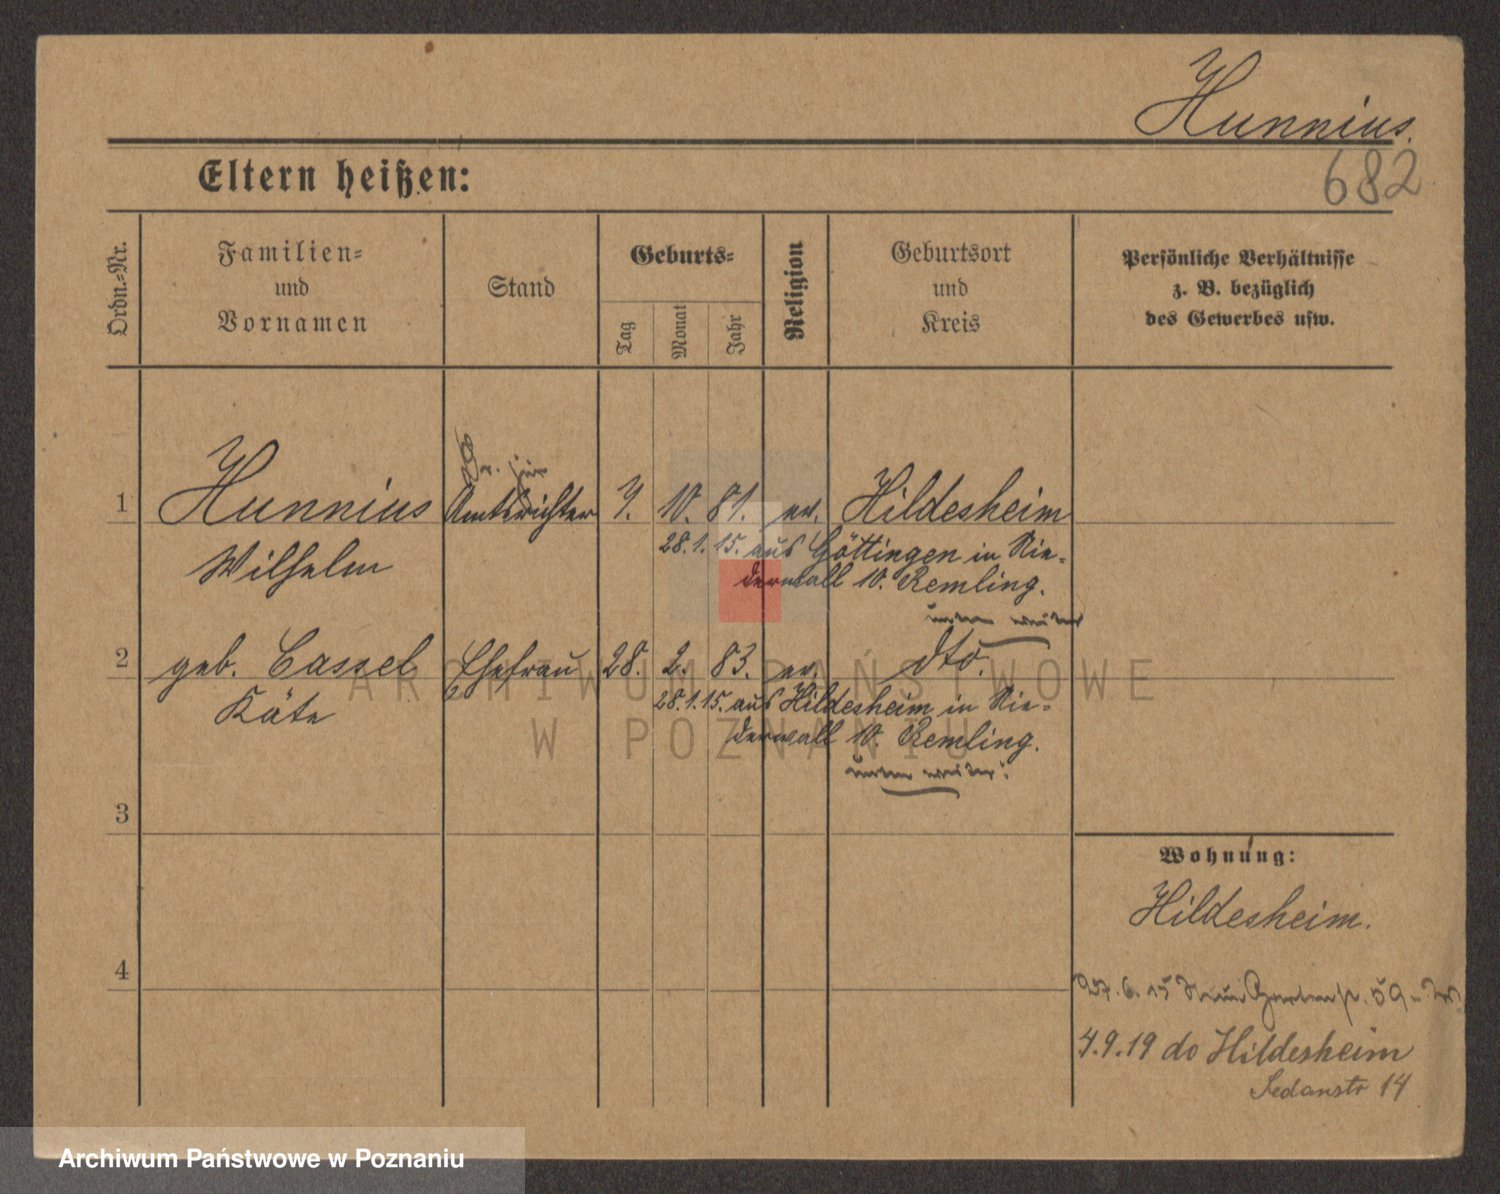 Hunnius.
682
Eltern heißen:
Ordn.-Nr.
Familien-
und
Vornamen
Stand
Geburts-
Tag
Monat
Jahr
Religion
Geburtsort
und
Kreis
Persönliche Verhältnisse
z. B. bezüglich
des Gewerbes usw.
Dr. jur.
1 Hunnius Amtsrichter 7. 10. 81. ev. Hildesheim
28.1.15. aus Göttingen in Nie-
Wilhelm
derwall 10. Remling.
unten weiter
2 geb. Cassel Ehefrau 28. 2. 83. ev. dto.
Käte
28.1.15. aus Hildesheim in Nie-
derwall 10. Remling.
unten weiter.
3
Wohnung:
Hildesheim.
4
6. 15 Gartenstr. 59
4.9.19 do Hildesheim
Sedanstr 14
ARCHIWUM PAŃSTWOWE
W POZNANIU
Archiwum Państwowe w Poznaniu